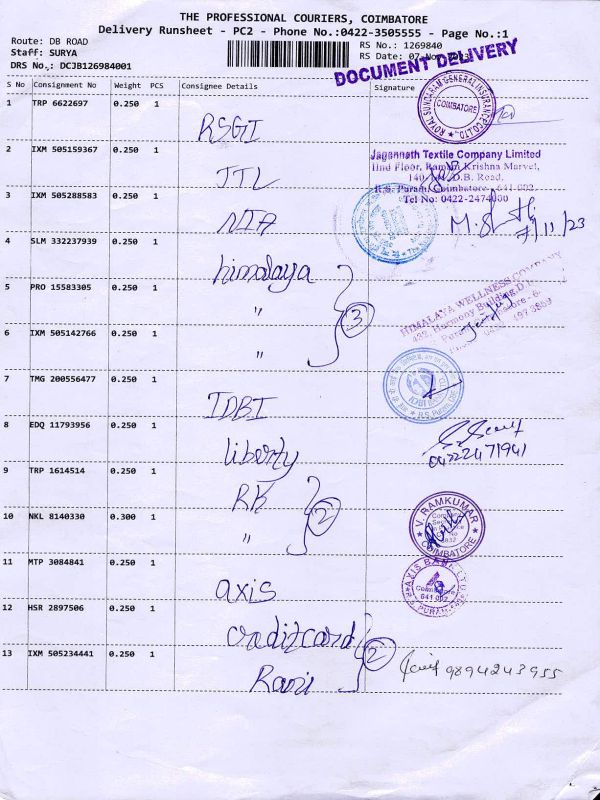 THE PROFESSIONAL COURIERS, COIMBATORE
Delivery Runsheet - PC2 - Phone No.:0422-3505555 - Page No.:1
Route: DB ROAD
Staff: SURYA
DRS No.: DCJB126984001
RS No.: 1269840
RS Date: 07-Nov-2023
DOCUMENT DELIVERY
S No Consignment No Weight PCS Consignee Details Signature
1 TRP 6622697 0.250 1 RSGI
ROYAL SUNDARAM GENERAL INSURANCE CO. LTD. COIMBATORE
2 IXM 505159367 0.250 1 JTL
Jagannath Textile Company Limited
IInd Floor, Raman Krishna Marvel,
D.B. Road,
R.S. Puram, Coimbatore - 641 002.
Tel No: 0422-2474000
3 IXM 505288583 0.250 1 NIA
7/11/23
4 SLM 332237939 0.250 1 himalaya
5 PRO 15583305 0.250 1 "
3
HIMALAYA WELLNESS COMPANY
6 IXM 505142766 0.250 1 "
7 TMG 200556477 0.250 1 IDBI
IDBI BANK LTD R.S. Puram
8 EDQ 11793956 0.250 1 liberty
04222471941
9 TRP 1614514 0.250 1 RK
10 NKL 8140330 0.300 1 "
2
V. RAMKUMAR COIMBATORE
11 MTP 3084841 0.250 1 axis
AXIS BANK LTD. R.S. PURAM Coimbatore 641 002
12 HSR 2897506 0.250 1 craditcard
13 IXM 505234441 0.250 1 Ravi
2
9894243955